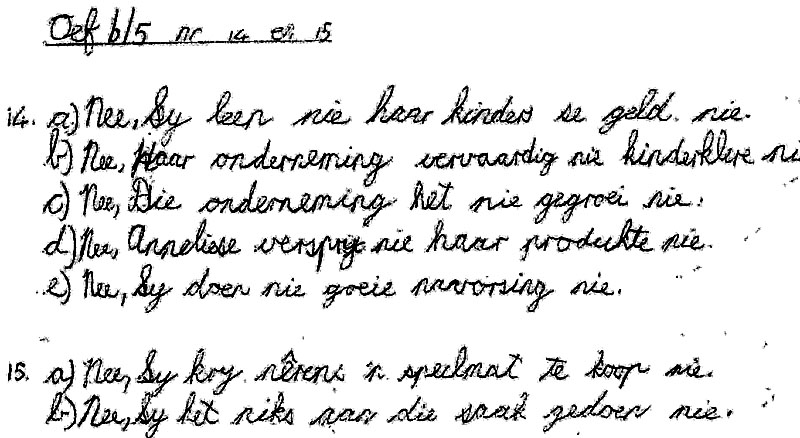 Oef b/5 nr 14 en 15
14. a) Nee, Sy leen nie haar kinders se geld nie.
b) Nee, Haar onderneming vervaardig nie kinderklere ni
c) Nee, Die onderneming het nie gegroei nie.
d) Nee, Anneliese versprei nie haar produkte nie.
e) Nee, Sy doen nie goeie navorsing nie.
15. a) Nee, Sy kry nêrens 'n speelmat te koop nie.
b) Nee, Sy het niks aan die saak gedoen nie.